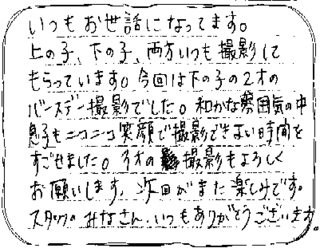 いつもお世話になってます。
上の子、下の子、両方いつも撮影して
もらっています。今回は下の子の2才の
バースデー撮影でした。和かな雰囲気の中
息子もニコニコ笑顔で撮影できよい時間を
すごせました。3才の撮影もよろしく
お願いします。次回がまた楽しみです。
スタッフのみなさん、いつもありがとうございます。